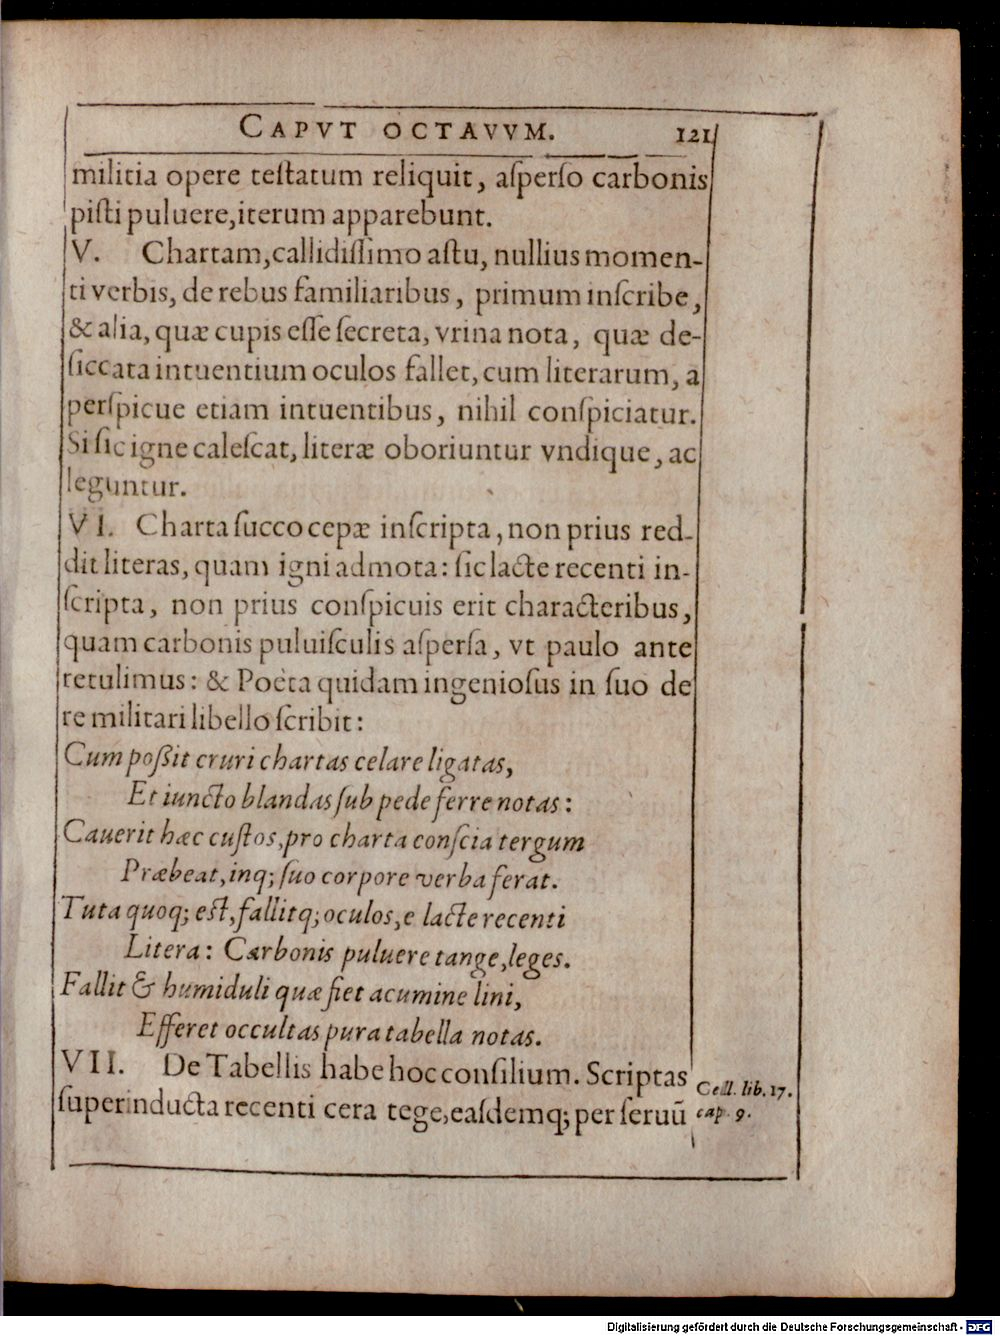 CAPVT OCTAVVM. 121
militia opere teſtatum reliquit, aſperſo carbonis
piſti puluere, iterum apparebunt.
V. Chartam, callidiſſimo aſtu, nullius momen-
ti verbis, de rebus familiaribus, primum inſcribe,
& alia, quæ cupis eſſe ſecreta, vrina nota, quæ de-
ſiccata intuentium oculos fallet, cum literarum, a
perſpicue etiam intuentibus, nihil conſpiciatur.
Si ſic igne caleſcat, literæ oboriuntur vndique, ac
leguntur.
VI. Charta ſucco cepæ inſcripta, non prius red-
dit literas, quam igni admota: ſic lacte recenti in-
ſcripta, non prius conſpicuis erit characteribus,
quam carbonis puluiſculis aſperſa, vt paulo ante
retulimus: & Poëta quidam ingenioſus in ſuo de
re militari libello ſcribit:
Cum poßit cruri chartas celare ligatas,
Et iuncto blandas ſub pede ferre notas:
Cauerit hæc cuſtos, pro charta conſcia tergum
Præbeat, inq; ſuo corpore verba ferat.
Tuta quoq; eſt, fallitq; oculos, e lacte recenti
Litera: Carbonis puluere tange, leges.
Fallit & humiduli quæ fiet acumine lini,
Efferet occultas pura tabella notas.
VII. De Tabellis habe hoc conſilium. Scriptas
ſuperinducta recenti cera tege, eaſdemq; per ſeruũ
Cell. lib. 17.
cap. 9.
Digitalisierung gefördert durch die Deutsche Forschungsgemeinschaft - DFG